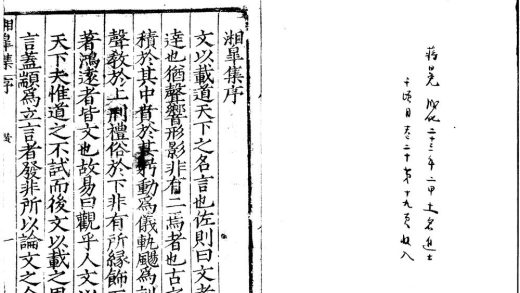 蔣冕 成化二十三年二甲十名進士
千頃目卷二十第十九頁收入
湘臯集序
文以載道天下之名言也佐則曰文者
達也猶聲響形影非有二焉者也古
積於其中賁於其躬動爲儀軌颺爲訓
聲敎於上刑禮俗於下非有所緣飾
著鴻遠者皆文也故易曰觀乎人文以
天下夫惟道之不試而後文以載之
言蓋顓爲立言者發非所以論文之全
湘臯集序 一